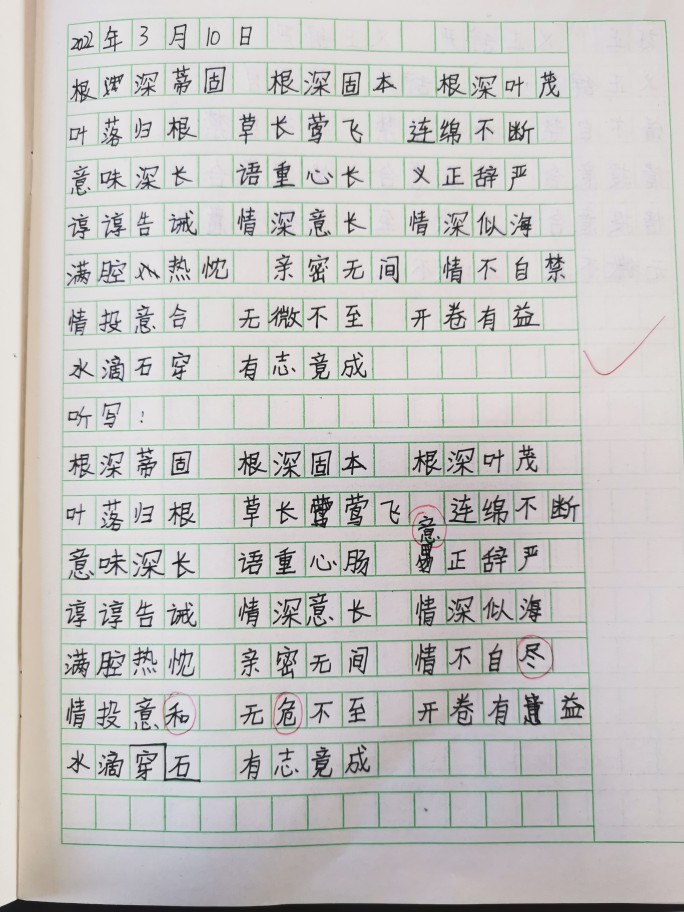 2022年3月10日
根深蒂固 根深固本 根深叶茂
叶落归根 草长莺飞 连绵不断
意味深长 语重心长 义正辞严
谆谆告诫 情深意长 情深似海
满腔热忱 亲密无间 情不自禁
情投意合 无微不至 开卷有益
水滴石穿 有志竟成
听写:
根深蒂固 根深固本 根深叶茂
叶落归根 草长莺飞 连绵不断
意味深长 语重心肠 意正辞严
谆谆告诫 情深意长 情深似海
满腔热忱 亲密无间 情不自尽
情投意和 无危不至 开卷有益
水滴穿石 有志竟成